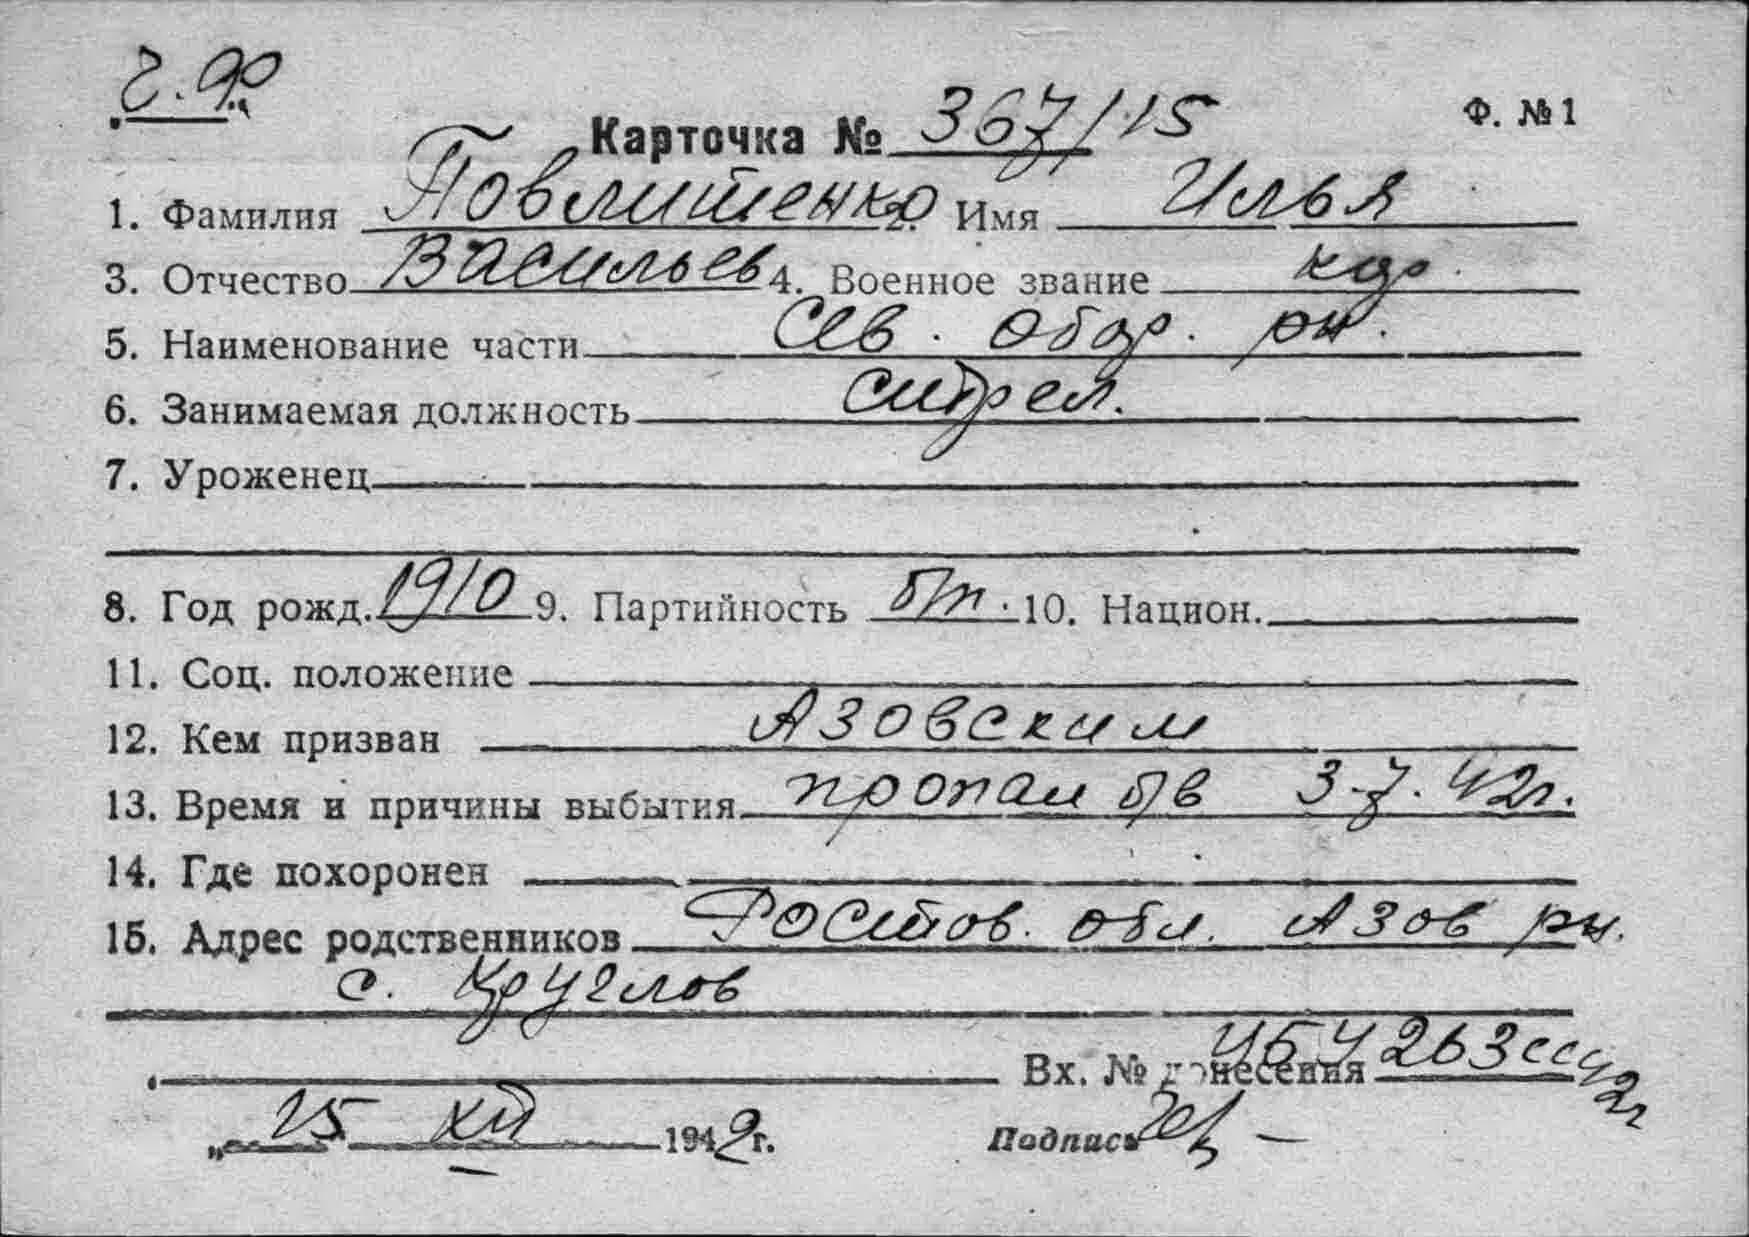 Ч.Ф.
Карточка № 367/15 Ф. № 1
1. Фамилия Повлитенко 2. Имя Илья
3. Отчество Васильев 4. Военное звание кр.
5. Наименование части Сев. обор. рн.
6. Занимаемая должность стрел.
7. Уроженец
8. Год рожд. 1910 9. Партийность б/п. 10. Национ.
11. Соц. положение
12. Кем призван Азовским
13. Время и причины выбытия пропал б/в 3.7.42г.
14. Где похоронен
15. Адрес родственников Ростов. обл. Азов рн.
с. Круглов
Вх. № донесения 263сс 42г
„ 15 XII 1942г. Подпись